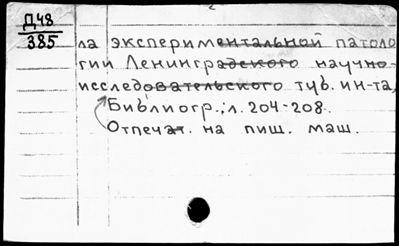 2
Д48
385
ла экспериментальной патоло
гии Ленинградского научно-
исследовательского туб. ин-та,
Библиогр.: л. 204-208.
Отпечат. на пиш. маш.